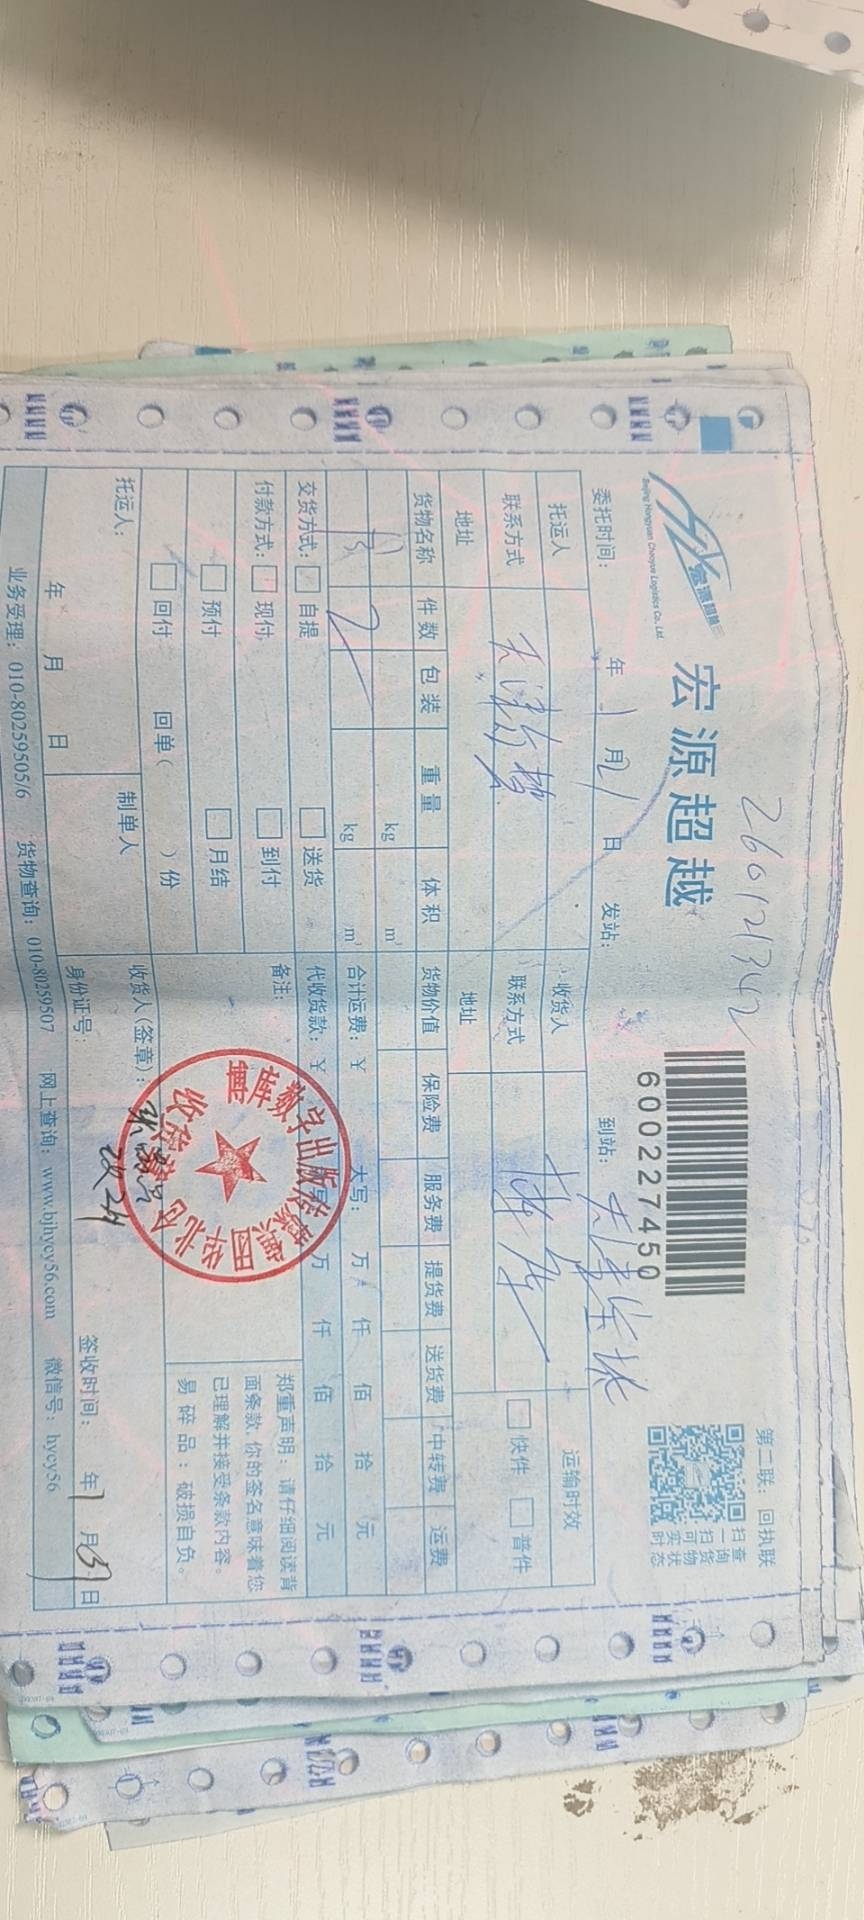 260121342
第二联：回执联
宏源超越
Beijing Hongyuan Chaoyue Logistics Co., Ltd.
宏源超越
600227450
扫一扫可实时
查询货物状态
委托时间： 年 1 月 21 日 发站： 到站：天津宝坻
托运人 收货人 运输时效
联系方式 联系方式 快件 普件
地址 地址
货物名称 件数 包装 重量 体积 货物价值 保险费 服务费 提货费 送货费 中转费 运费
kg m³
2 kg m³
合计运费：￥ 大写： 万 仟 佰 拾 元
交货方式： 自提 送货 代收货款：￥ 大写： 万 仟 佰 拾 元
付款方式： 现付 到付 备注：
预付 月结
回付 回单（ ）份
郑重声明：请仔细阅读背
面条款，你的签名意味着您
已理解并接受条款内容。
易碎品：破损自负。
托运人： 制单人 收货人（签章）：
年 月 日 身份证号： 签收时间： 年 1 月 31 日
业务受理：010-80259505/6 货物查询：010-80259507 网上查询：www.bjhycy56.com 微信号：hycy56